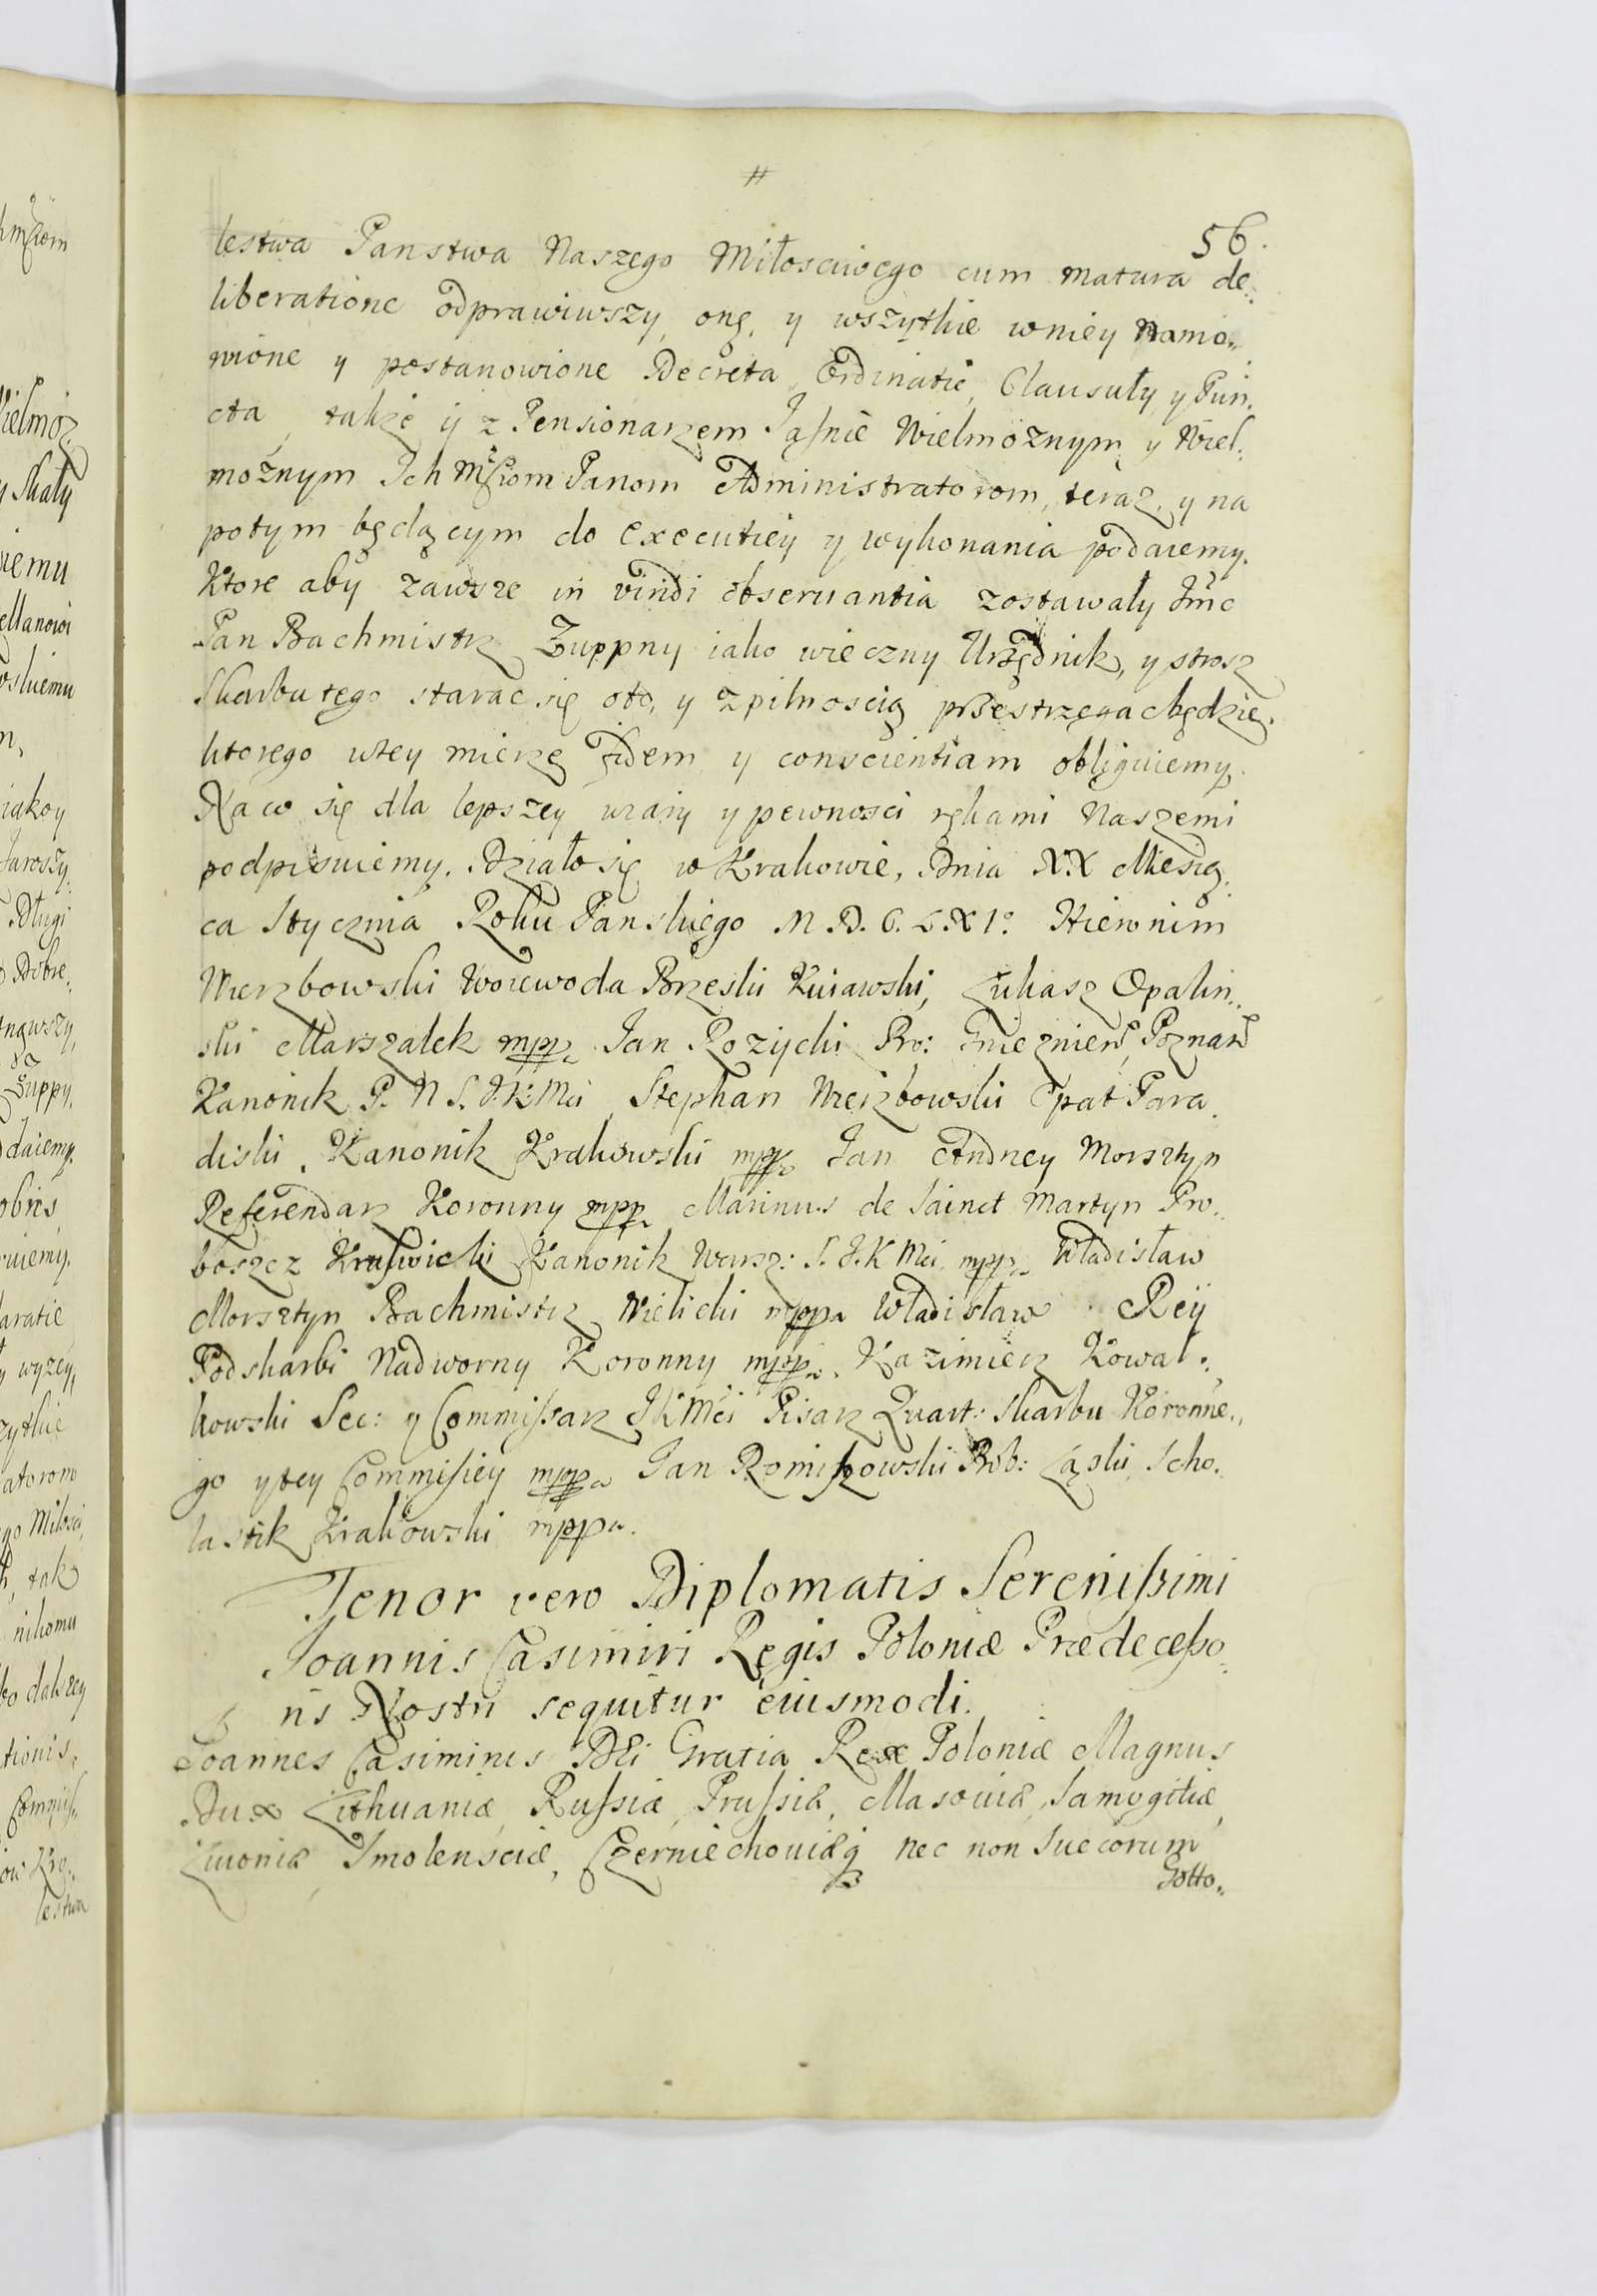 56.
lestwa Panstwa Naszego Miłosciwego cum matura de„
liberatione odprawiwszy onę, y wszytkie wniey namo„
wione y postanowione Decreta, Ordinatie, Clausuły y Pun„
cta, także y z Pensionarzem Jaśnie Wielmożnym y Wiel„
możnym Ich Mściom Panom Administratorom, teraz y na
potym będącym do executiey y wykonania podaiemy.
Ktore aby zawsze in viridi observantia zostawały Jmć
Pan Bachmistrz Zuppny iako wieczny Urzędnik, y stroż
Skarbu tego starac się oto, y z pilnoscią przestrzegac będzie.
ktorego wtey mierze fidem y conscientiam obliguiemy.
Na co się dla lepszey wiary y pewnosci rękami Naszemi
podpisuiemy. Działo się w Krakowie, Dnia XX Miesią„
ca Stycznia Roku Panskiego M. D. C. L X I° Hieronim
Wierzbowski Woiewoda Brzeski Kuiawski, Łukasz Opalin„
ski Marszałek mpp. Jan Rozycki Pro: Gniezniens, Poznans
Kanonik P. N S. J.K.Mci Stephan Wierzbowski Opat Para„
diski, Kanonik Krakowski mpp. Jan Andrzey Morsztyn
Referendarz Koronny mpp. Marinus de Sainct Martyn Pro„
boszcz Kruswicki Kanonik Warsz: S. J.K Mci mpp. Władisław
Morsztyn Bachmistrz Wielicki mppa Władisław Reij
Podskarbi Nadworny Koronny mppa. Kazimierz Kowal„
kowski Sec: y Commissarz JKMci Pisarz Quart: Skarbu Koronne„
go y tey Commissiey mppa Jan Romiszowski Prob: Łąski Scho„
lastik Krakowski mppa.
Tenor vero Diplomatis Serenissimi
Joannis Casimiri Regis Poloniæ Prædecesso„
ris Nostri sequitur eiusmodi.
Joannes Casimirus DEi Gratia Rex Poloniæ Magnus
Dux Lithuaniæ, Russiæ, Prussiæ, Masoviæ, Samogitiæ,
Livoniæ Smolensciæ, Czerniechoviæq nec non Suecorum
Gotto„